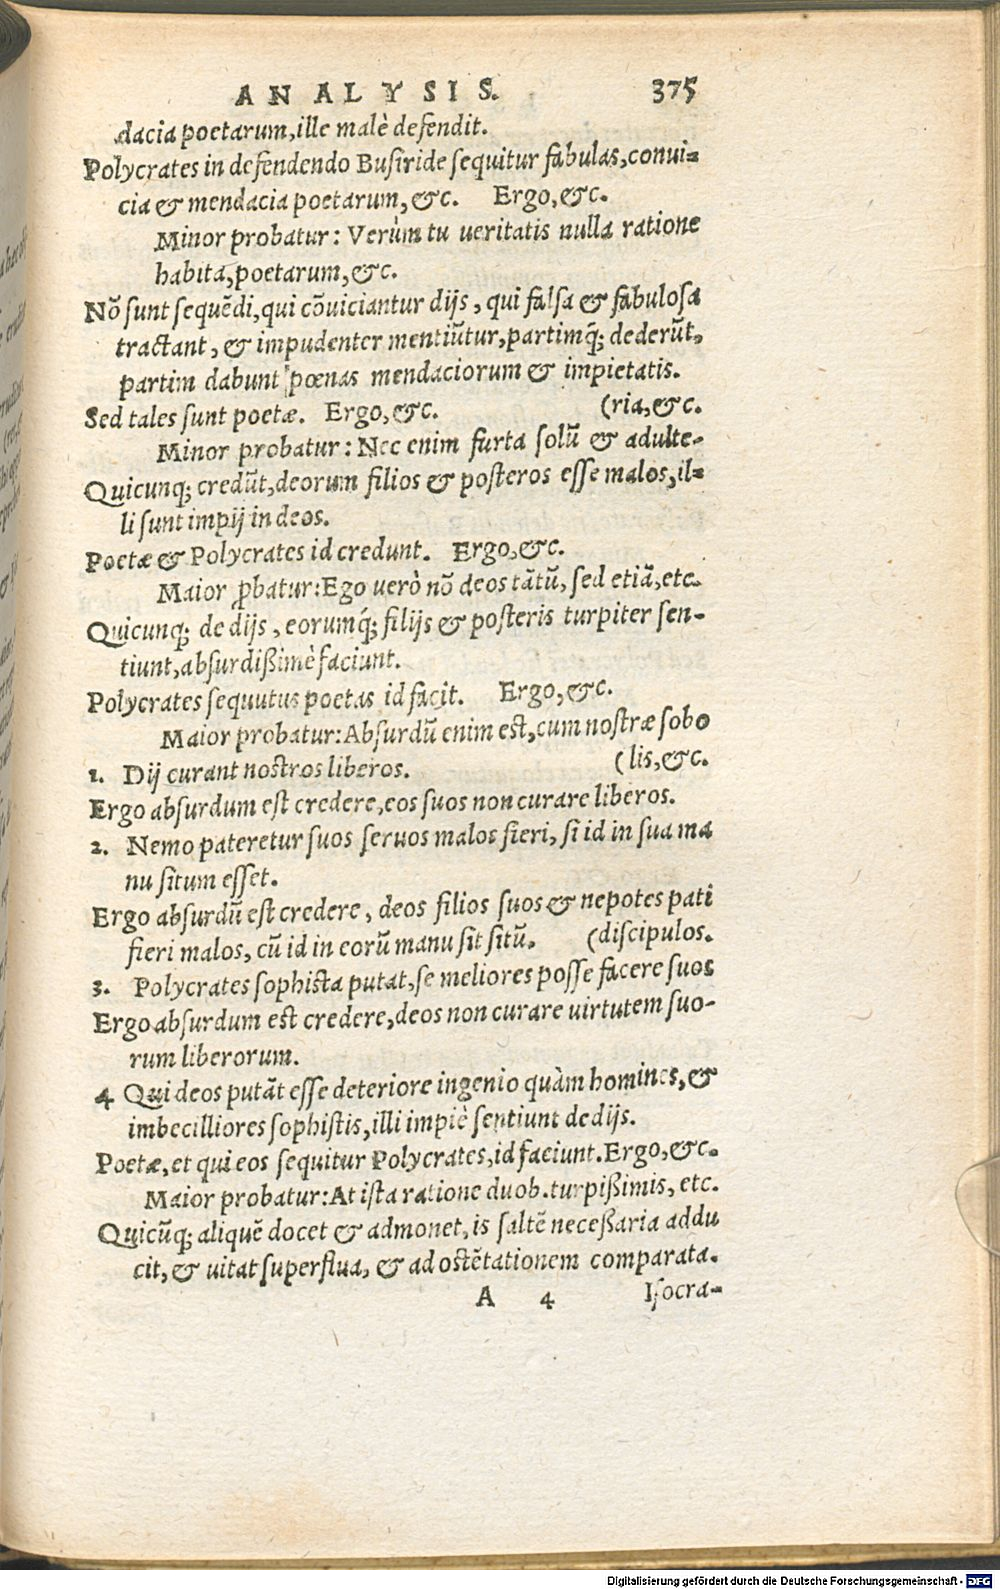 ANALYSIS. 375
dacia poetarum, ille malè defendit.
Polycrates in defendendo Busiride sequitur fabulas, conui-
cia & mendacia poetarum, &c. Ergo, &c.
Minor probatur: Verùm tu ueritatis nulla ratione
habita, poetarum, &c.
Nō sunt sequēdi, qui cōuiciantur dijs, qui falsa & fabulosa
tractant, & impudenter mentiūtur, partimq́; dederūt,
partim dabunt pœnas mendaciorum & impietatis.
Sed tales sunt poetæ. Ergo, &c. (ria, &c.
Minor probatur: Nec enim furta solū & adulte-
Quicunq; credūt, deorum filios & posteros esse malos, il-
li sunt impij in deos.
Poetæ & Polycrates id credunt. Ergo, &c.
Maior ꝓbatur: Ego uerò nō deos tātū, sed etiā, etc.
Quicunq; de dijs, eorumq́; filijs & posteris turpiter sen-
tiunt, absurdißimè faciunt.
Polycrates sequutus poetas id facit. Ergo, &c.
Maior probatur: Absurdū enim est, cum nostræ sobo
1. Dij curant nostros liberos. (lis, &c.
Ergo absurdum est credere, eos suos non curare liberos.
2. Nemo pateretur suos seruos malos fieri, si id in sua ma
nu situm esset.
Ergo absurdū est credere, deos filios suos & nepotes pati
fieri malos, cū id in eorū manu sit sitū. (discipulos.
3. Polycrates sophista putat, se meliores posse facere suos
Ergo absurdum est credere, deos non curare uirtutem suo-
rum liberorum.
4 Qui deos putāt esse deteriore ingenio quàm homines, &
imbecilliores sophistis, illi impiè sentiunt de dijs.
Poetæ, et qui eos sequitur Polycrates, id faciunt. Ergo, &c.
Maior probatur: At ista ratione duob. turpißimis, etc.
Quicūq; aliquē docet & admonet, is saltē neceßaria addu
cit, & uitat superflua, & ad ostētationem comparata.
A 4 Isocra-
Digitalisierung gefördert durch die Deutsche Forschungsgemeinschaft - DFG